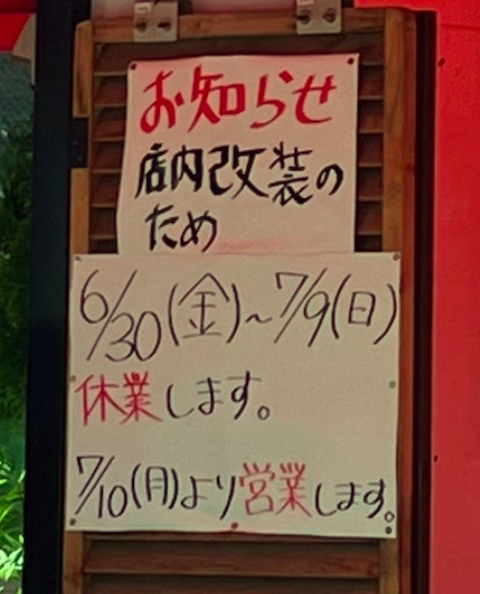 お知らせ
店内改装の
ため
6/30(金)~7/9(日)
休業します。
7/10(月)より営業します。